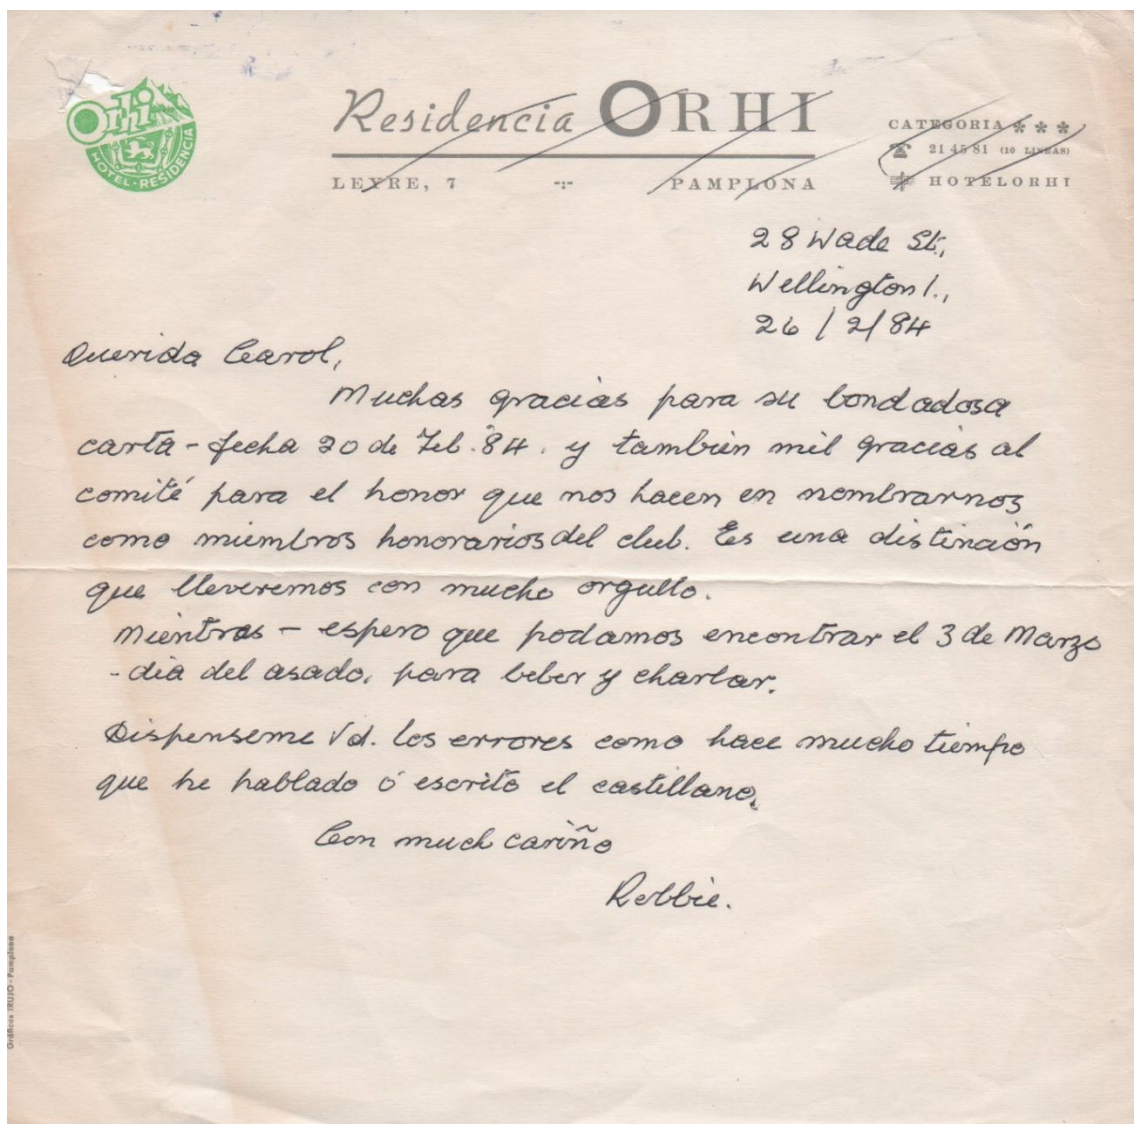 Orhi
HOTEL-RESIDENCIA
Residencia ORHI
LEYRE, 7 -:- PAMPLONA
CATEGORIA ***
☎ 21 45 81 (10 LINEAS)
HOTELORHI
28 Wade St.,
Wellington 1.,
26/2/84
Querida Carol,
Muchas gracias para su bondadosa
carta - fecha 20 de Feb. '84. y tambien mil gracias al
comité para el honor que nos hacen en nombrarnos
como miembros honorarios del club. Es una distinción
que lleveremos con mucho orgullo.
Mientras - espero que podamos encontrar el 3 de Marzo
- dia del asado, para beber y charlar.
Dispenseme Vd. los errores como hace mucho tiempo
que he hablado ó escrito el castillano.
Con much cariño
Robbie.
Gráficas IRUJO - Pamplona